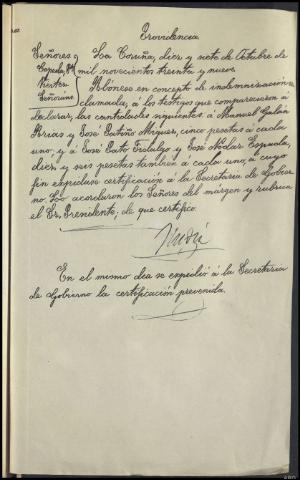 Providencia
Señores La Coruña, diez y siete de Octubre de
Cepeda, mil novecientos treinta y nueve.
Abónese en concepto de indemnización re-
clamada, á los testigos que comparecieron á
declarar, las cantidades siguientes: á Manuel Galán
Arias y José Patiño cinco pesetas á cada
uno; y á José Cato Fidalgo y José Espada,
diez y seis pesetas también á cada uno, á cuyo
fin expídase certificación á la Secretaría de Gobier-
no. Lo acordaron los Señores del márgen y rubrica
el Sr. Presidente, de que certifico.
En el mismo día se expidió á la Secretaría
de Gobierno la certificación prevenida.